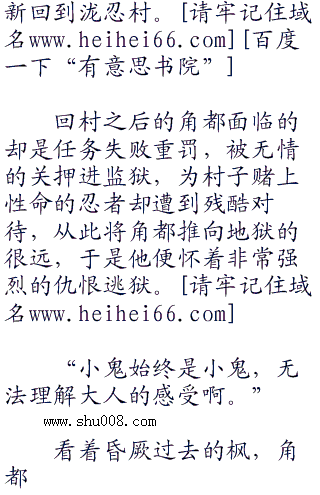 新回到泷忍村。[请牢记住域
名www.heihei66.com][百度
一下“有意思书院”]
回村之后的角都面临的
却是任务失败重罚，被无情
的关押进监狱，为村子赌上
性命的忍者却遭到残酷对
待，从此将角都推向地狱的
很远，于是他便怀着非常强
烈的仇恨逃狱。[请牢记住域
名www.heihei66.com]
“小鬼始终是小鬼，无
法理解大人的感受啊。”
www.shu008.com
看着昏厥过去的枫，角
都